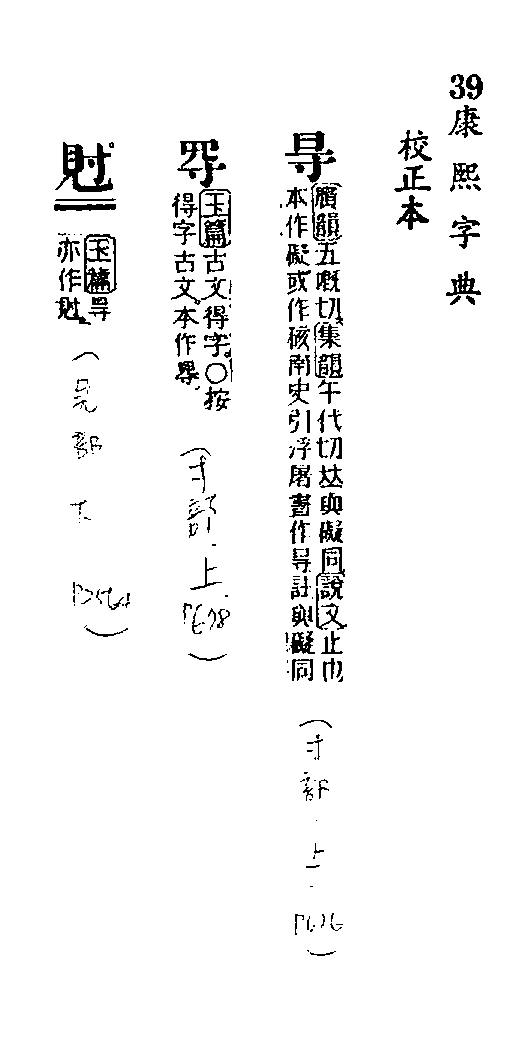 39康熙字典
校正本
㝵
廣韻五嘅切集韻午代切𠀤與礙同說文止也
本作礙或作硋南史引浮屠書作㝵註與礙同
(寸部.上.P676)
玉篇古文得字〇按
得字古文本作㝵
(寸部.上.P678)
玉篇㝵
亦作
(見部下